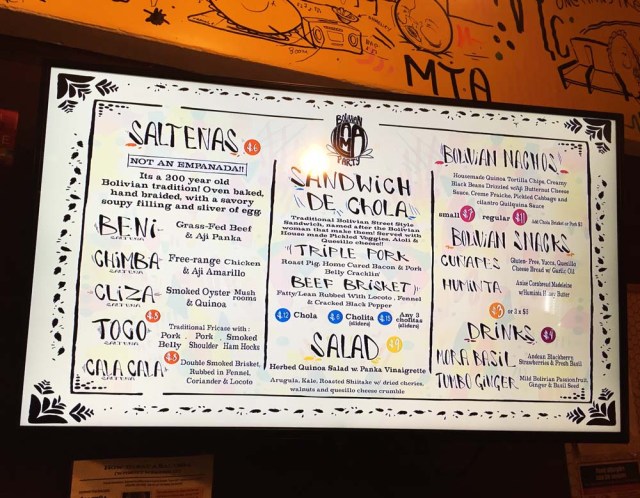 MTA
SALTENAS 4.6
NOT AN EMPANADA!!
Its a 300 year old
Bolivian tradition! Oven baked,
hand braided, with a savory
soupy filling and sliver of egg.
BENI
SALTENA
Grass-Fed Beef
& Aji Panka
CHIMBA
SALTENA
Free-range Chicken
& Aji Amarillo
CLIZA
SALTENA
Smoked Oyster Mush
rooms
& Quinoa
TOGO 4.8
SALTENA
Traditional Fricase with :
Pork . Pork . Smoked
Belly Shoulder Ham Hocks
CALA CALA 4.8
SALTENA
Double Smoked Brisket,
Rubbed in Fennel,
Coriander & Locoto
BOLIVIAN
PARTY
SANDWiCH
DE CHOLA
Traditional Bolivian Street Style
Sandwich, named after the Bolivian
woman that make them! Served with
House made Pickled Veggies, Aioli &
Quesillo cheese!!
TRIPLE PORK
Roast Pig, Home Cured Bacon & Pork
Belly Cracklin'
BEEF BRISKET
Fatty/Lean Rubbed With Locoto , Fennel
& Cracked Black Pepper
Chola
Cholita
(sliders)
Any 3
cholitas
(sliders)
SALAD
Herbed Quinoa Salad w. Panka Vinaigrette
Arugula, Kale, Roasted Shiitake w/ dried cheries,
walnuts and quesillo cheese crumble
BOLIVIAN NACHOS
Homemade Quinoa Tortilla Chips, Creamy
Black Beans Drizzled w/Aji Butternut Cheese
Sauce, Creme Fraiche, Pickled Cabbage and
cilantro Quilquina Sauce
small regular
Add Chola Brisket or Pork
BOLIVIAN SNACKS
CUÑAPES
Gluten- Free, Yucca, Quesillo
Cheese Bread w/ Garlic Oil
HUMINTA
Anise Cornbread Madeleine
w/Huminta Honey Butter
or 2 x $8
DRINKS
MORA BASIL
Andean Blackberry,
Strawberries & Fresh Basil
TUMBO GINGER
Mild Bolivian Passionfruit,
Ginger & Basil Seed